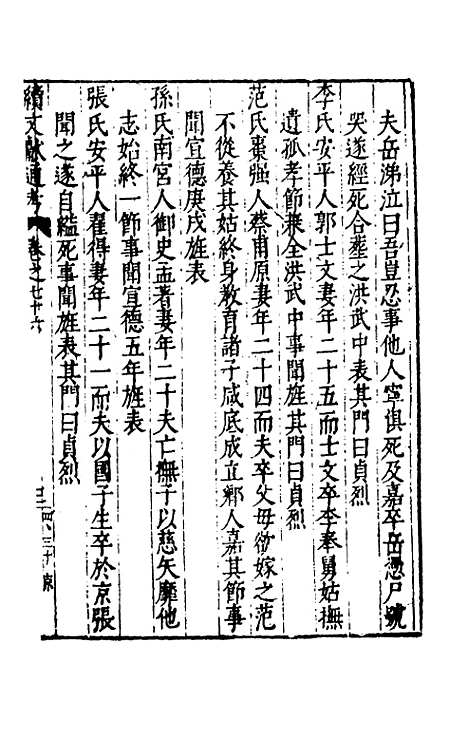 夫岳涕泣曰吾豈忍事他人寧俱死及嘉卒岳憑尸號
哭遂經死合葬之洪武中表其門曰貞烈
李氏安平人郭士文妻年二十五而士文卒李奉舅姑撫
遺孤孝節兼全洪武中事聞旌其門曰貞烈
范氏棗强人蔡甫原妻年二十四而夫卒父母欲嫁之范
不從養其姑終身教育諸子咸底成立鄉人嘉其節事
聞宣德庚戌旌表
孫氏南宮人御史孟著妻年二十夫亡撫子以慈矢靡他
志始終一節事聞宣德五年旌表
張氏安平人翟得妻年二十一而夫以國子生卒於京張
聞之遂自縊死事聞旌表其門曰貞烈
續文獻通考 卷之七十六